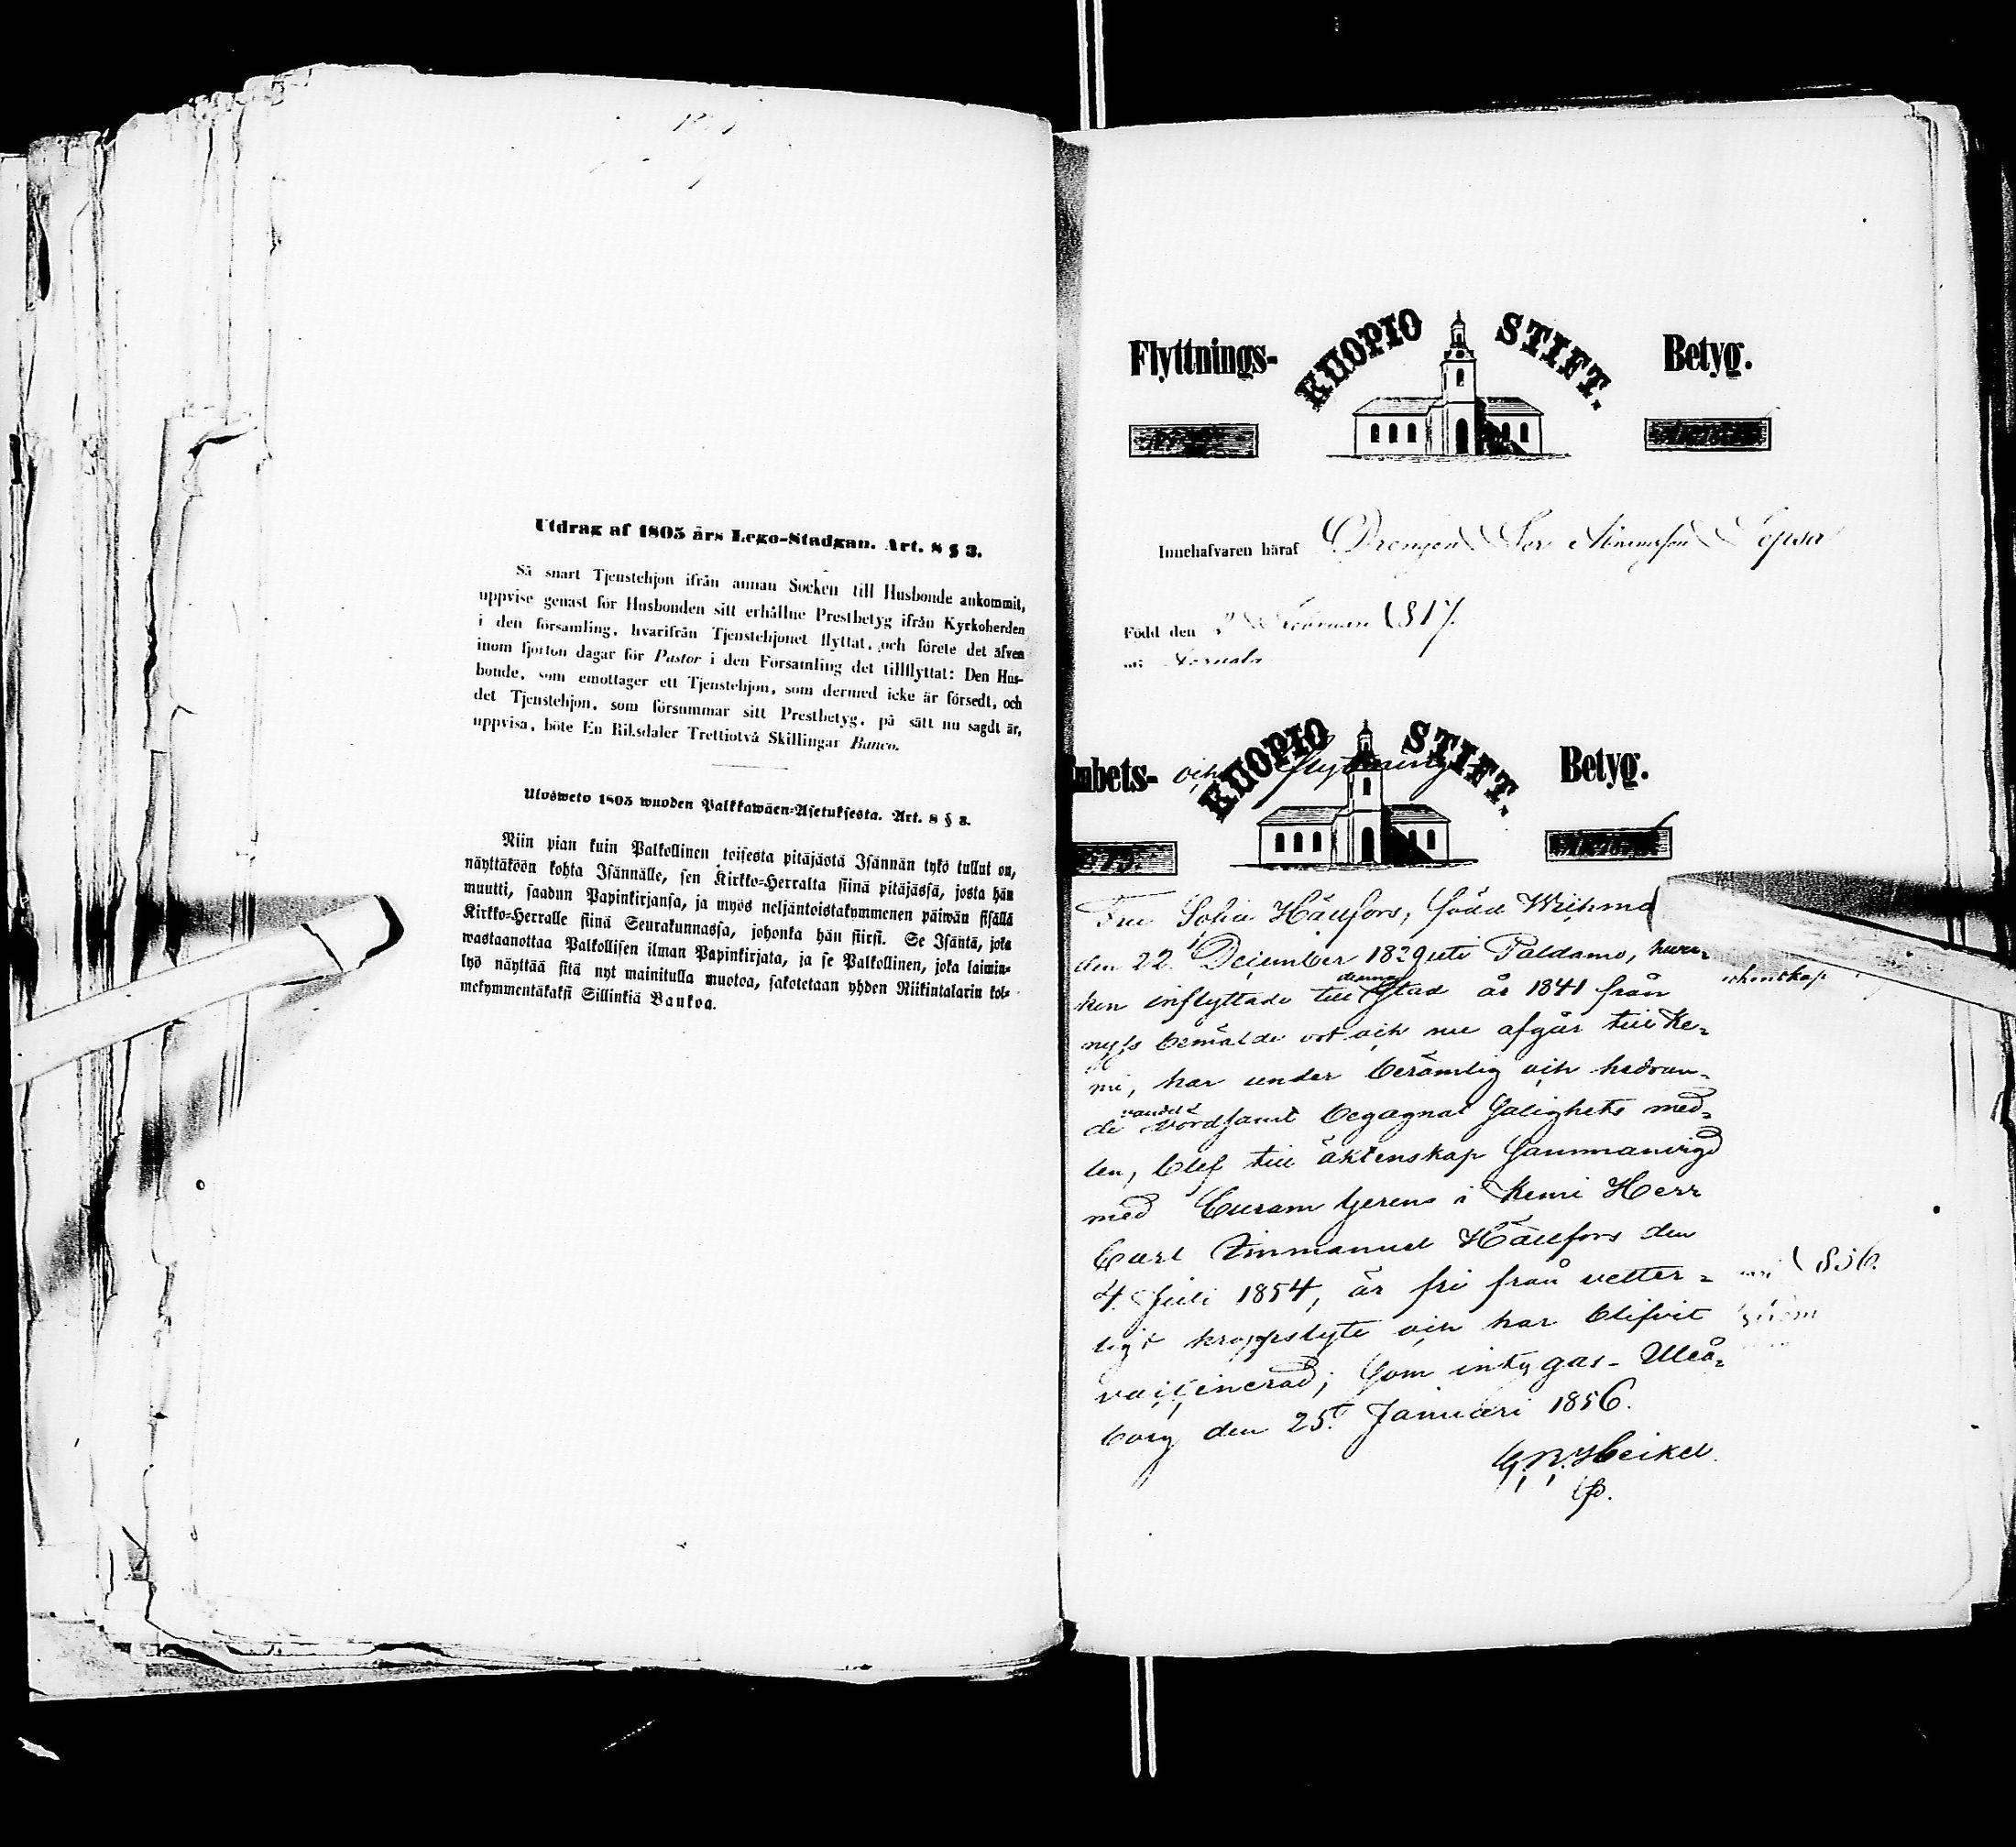 Utdrag af 1805 års Lego-Stadgan. Art. 8 § 3.
Så snart Tjenstehjon ifrån annan Socken till Husbonde ankommit,
uppvise genast för Husbonden sitt erhållne Prestbetyg ifrån Kyrkoherden
i den församling, hvarifrån Tjenstehjonet flyttat, och förete det äfven
inom fjorton dagar för Pastor i den Församling det tillflyttat: Den Hus-
bonde, som emottager ett Tjenstehjon, som dermed icke är försedt, och
det Tjenstehjon, som försummar sitt Prestbetyg, på sätt nu sagdt är,
uppvisa, böte En Riksdaler Trettiotvå Skillingar Banco.
Ulosweto 1805 wuoden Palkkawäen-Asetuksesta. Art. 8 § 3.
Niin pian kuin Palkollinen toisesta pitäjästä Isännän tykö tullut on,
näyttäköön kohta Isännälle, sen Kirkko-Herralta siinä pitäjässä, josta hän
muutti, saadun Papinkirjansa, ja myös neljäntoistakymmenen päiwän sisällä
Kirkko-Herralle siinä Seurakunnassa, johonka hän siirsi. Se Isäntä, joka
wastaanottaa Palkollisen ilman Papinkirjata, ja se Palkollinen, joka laimin-
lyö näyttää sitä nyt mainitulla muotoa, sakotetaan yhden Riikintalarin kol-
mekymmentäkaksi Sillinkiä Bankoa.
Flyttnings- KUOPIO STIFT. Betyg.
Innehafvaren häraf Drengen
Född den 1817.
KUOPIO STIFT.
mbets- och flyttnings Betyg.
Fru Sofia Hällfors, född Wichma
den 22 December 1829 uti Paldamo, hvar-
ken inflyttade till denna Stad år 1841 från
nyss bemälde ort och nu afgår till Ke-
mi, har under berömlig och hedran-
de vandel vördsamt begagnat salighets med-
len, blef till äktenskap sammanvigd
med Curam gerens i Kemi Herr
Carl Emmanuel Hällfors den
4 Juli 1854, är fri från vetter-
ligt kroppslyte och har blifvit
vaccinerad; som intygas. Uleå-
borg den 25 Januari 1856.
1856.
Heikel